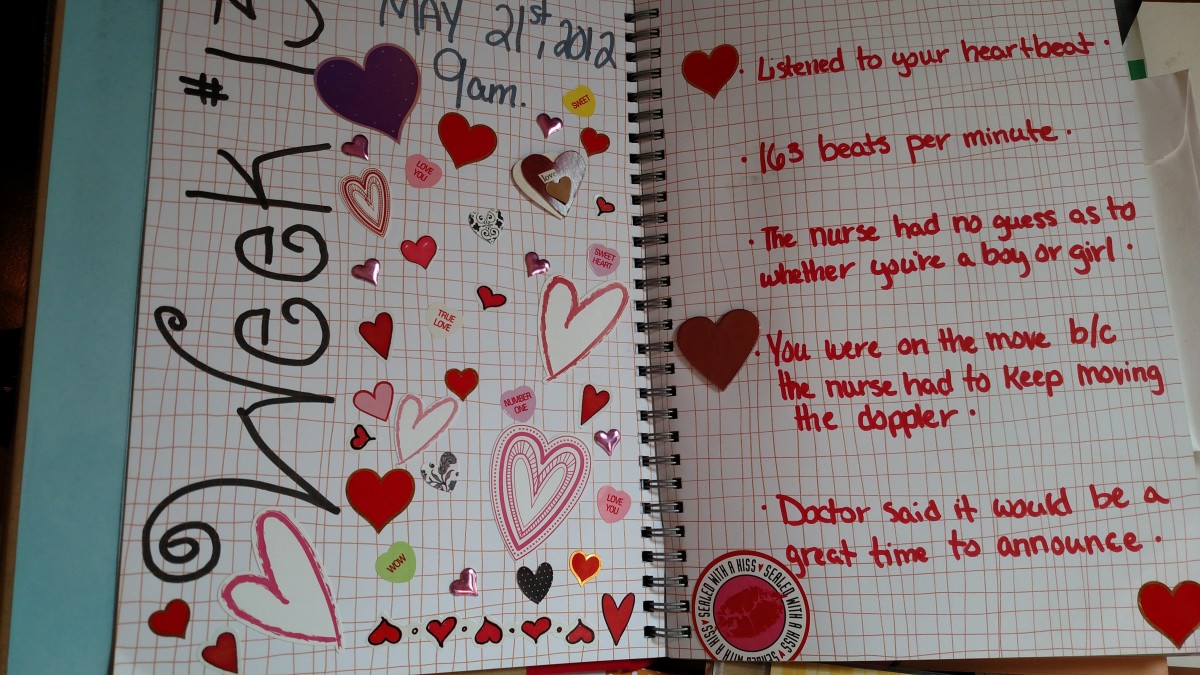 Week #13
MAY 21st, 2012
9am.
SWEET
LOVE
YOU
love
SWEET
HEART
TRUE
LOVE
NUMBER
ONE
LOVE
YOU
WOW
· Listened to your heartbeat ·
· 163 beats per minute ·
· The nurse had no guess as to
whether you're a boy or girl ·
· You were on the move b/c
the nurse had to keep moving
the doppler ·
· Doctor said it would be a
great time to announce ·
SEALED WITH A KISS ♥ SEALED WITH A KISS ♥ SEALED WITH A KISS